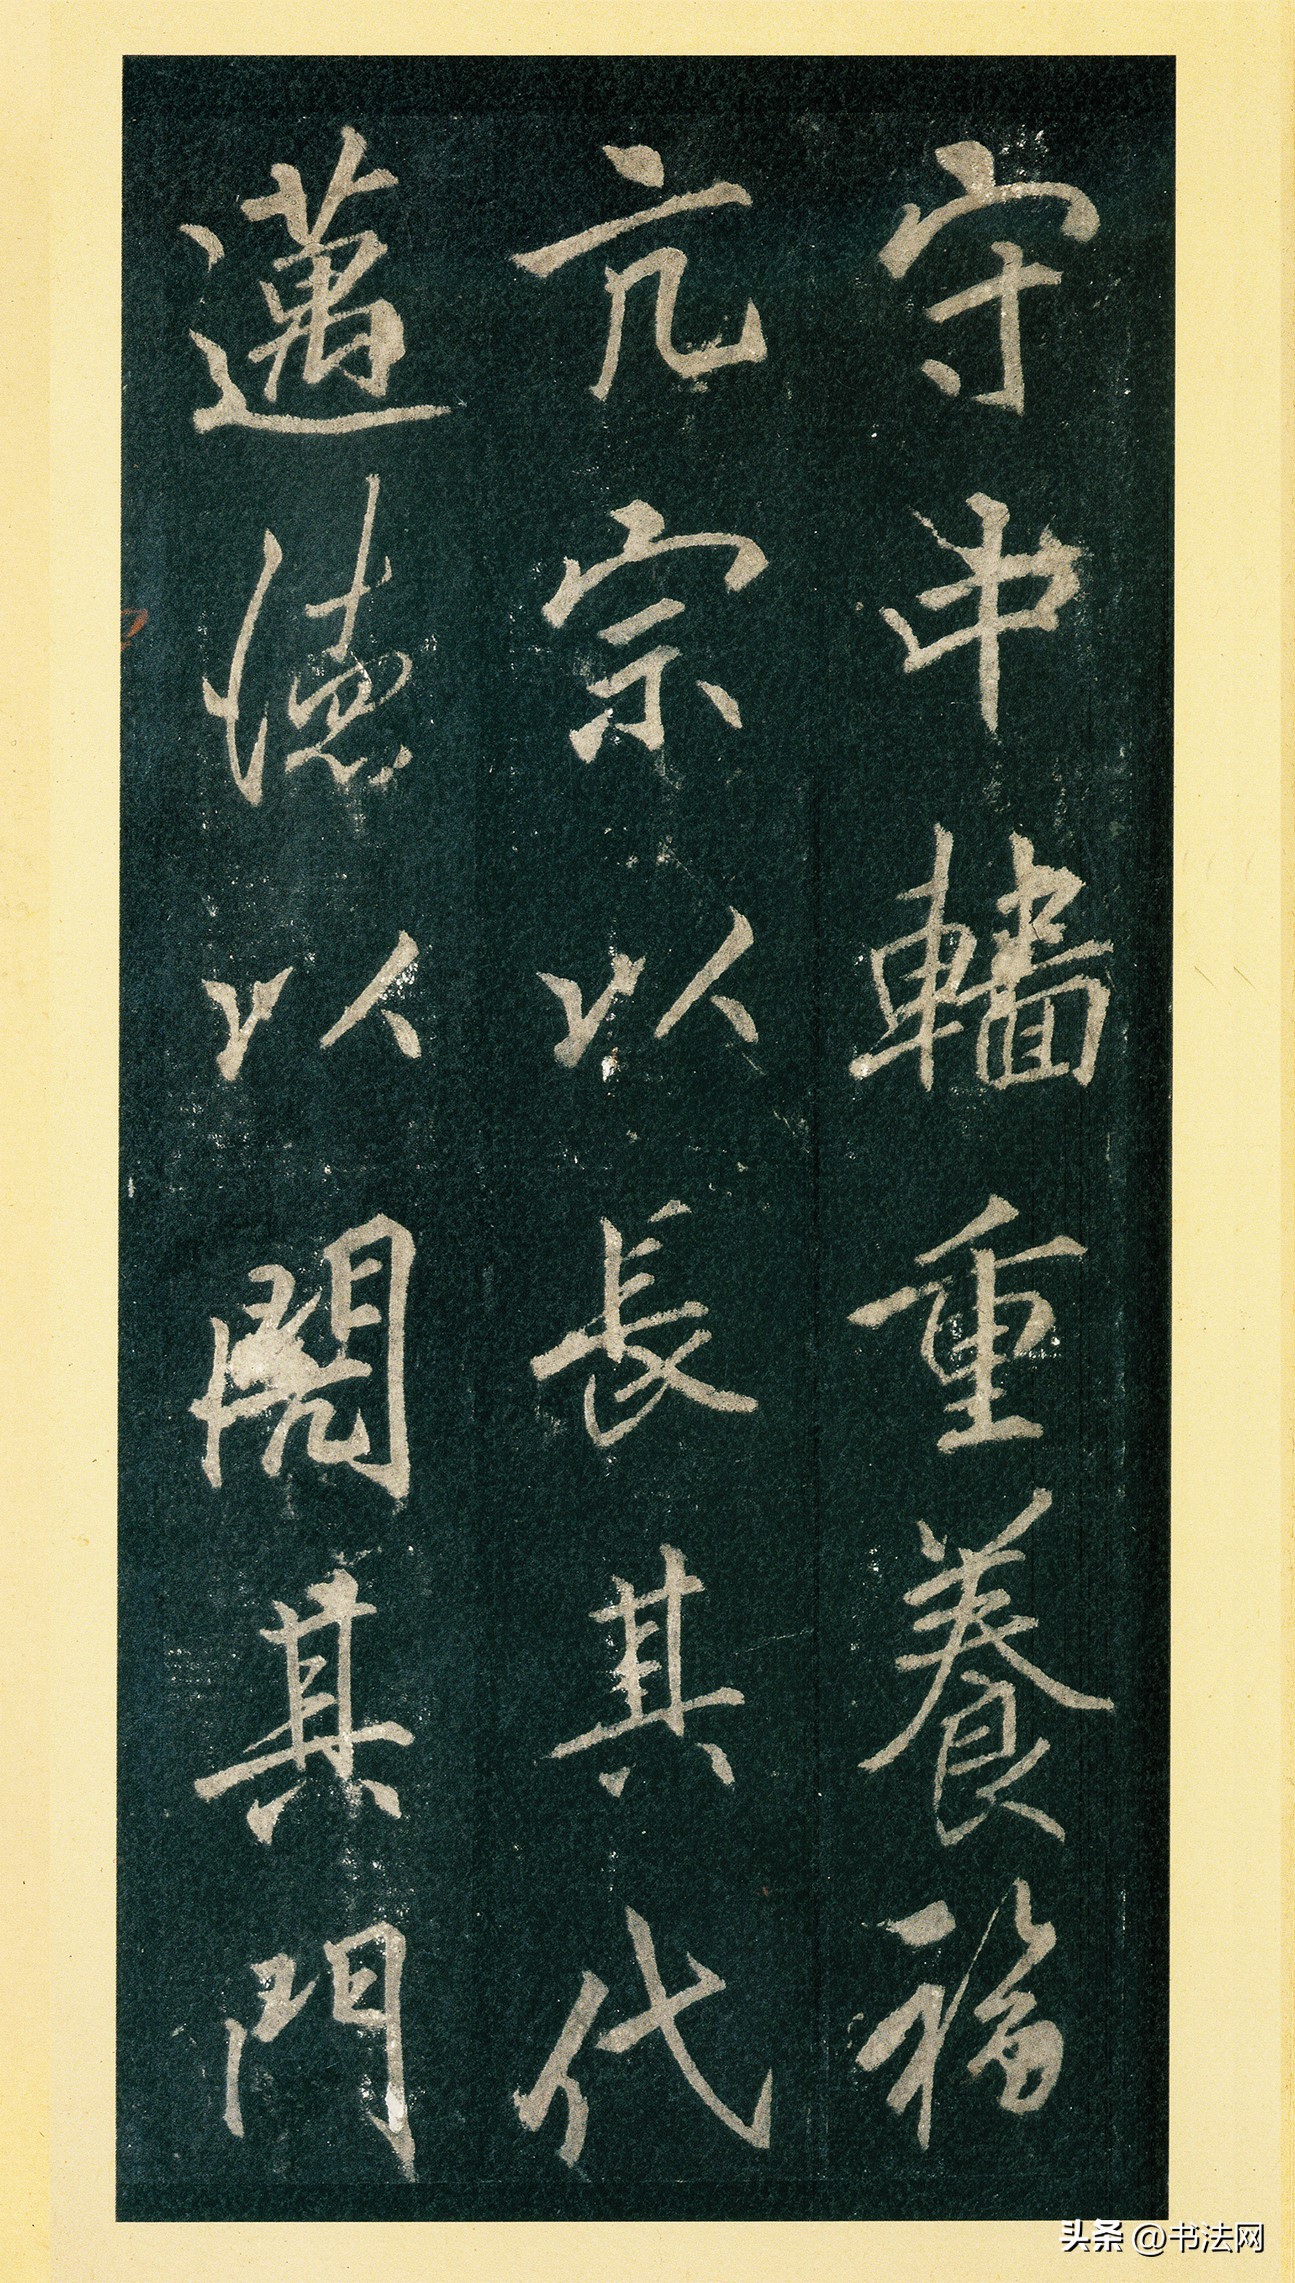 守中輜重養福
亢宗以長其代
邁德以閌其門
头条 @书法网